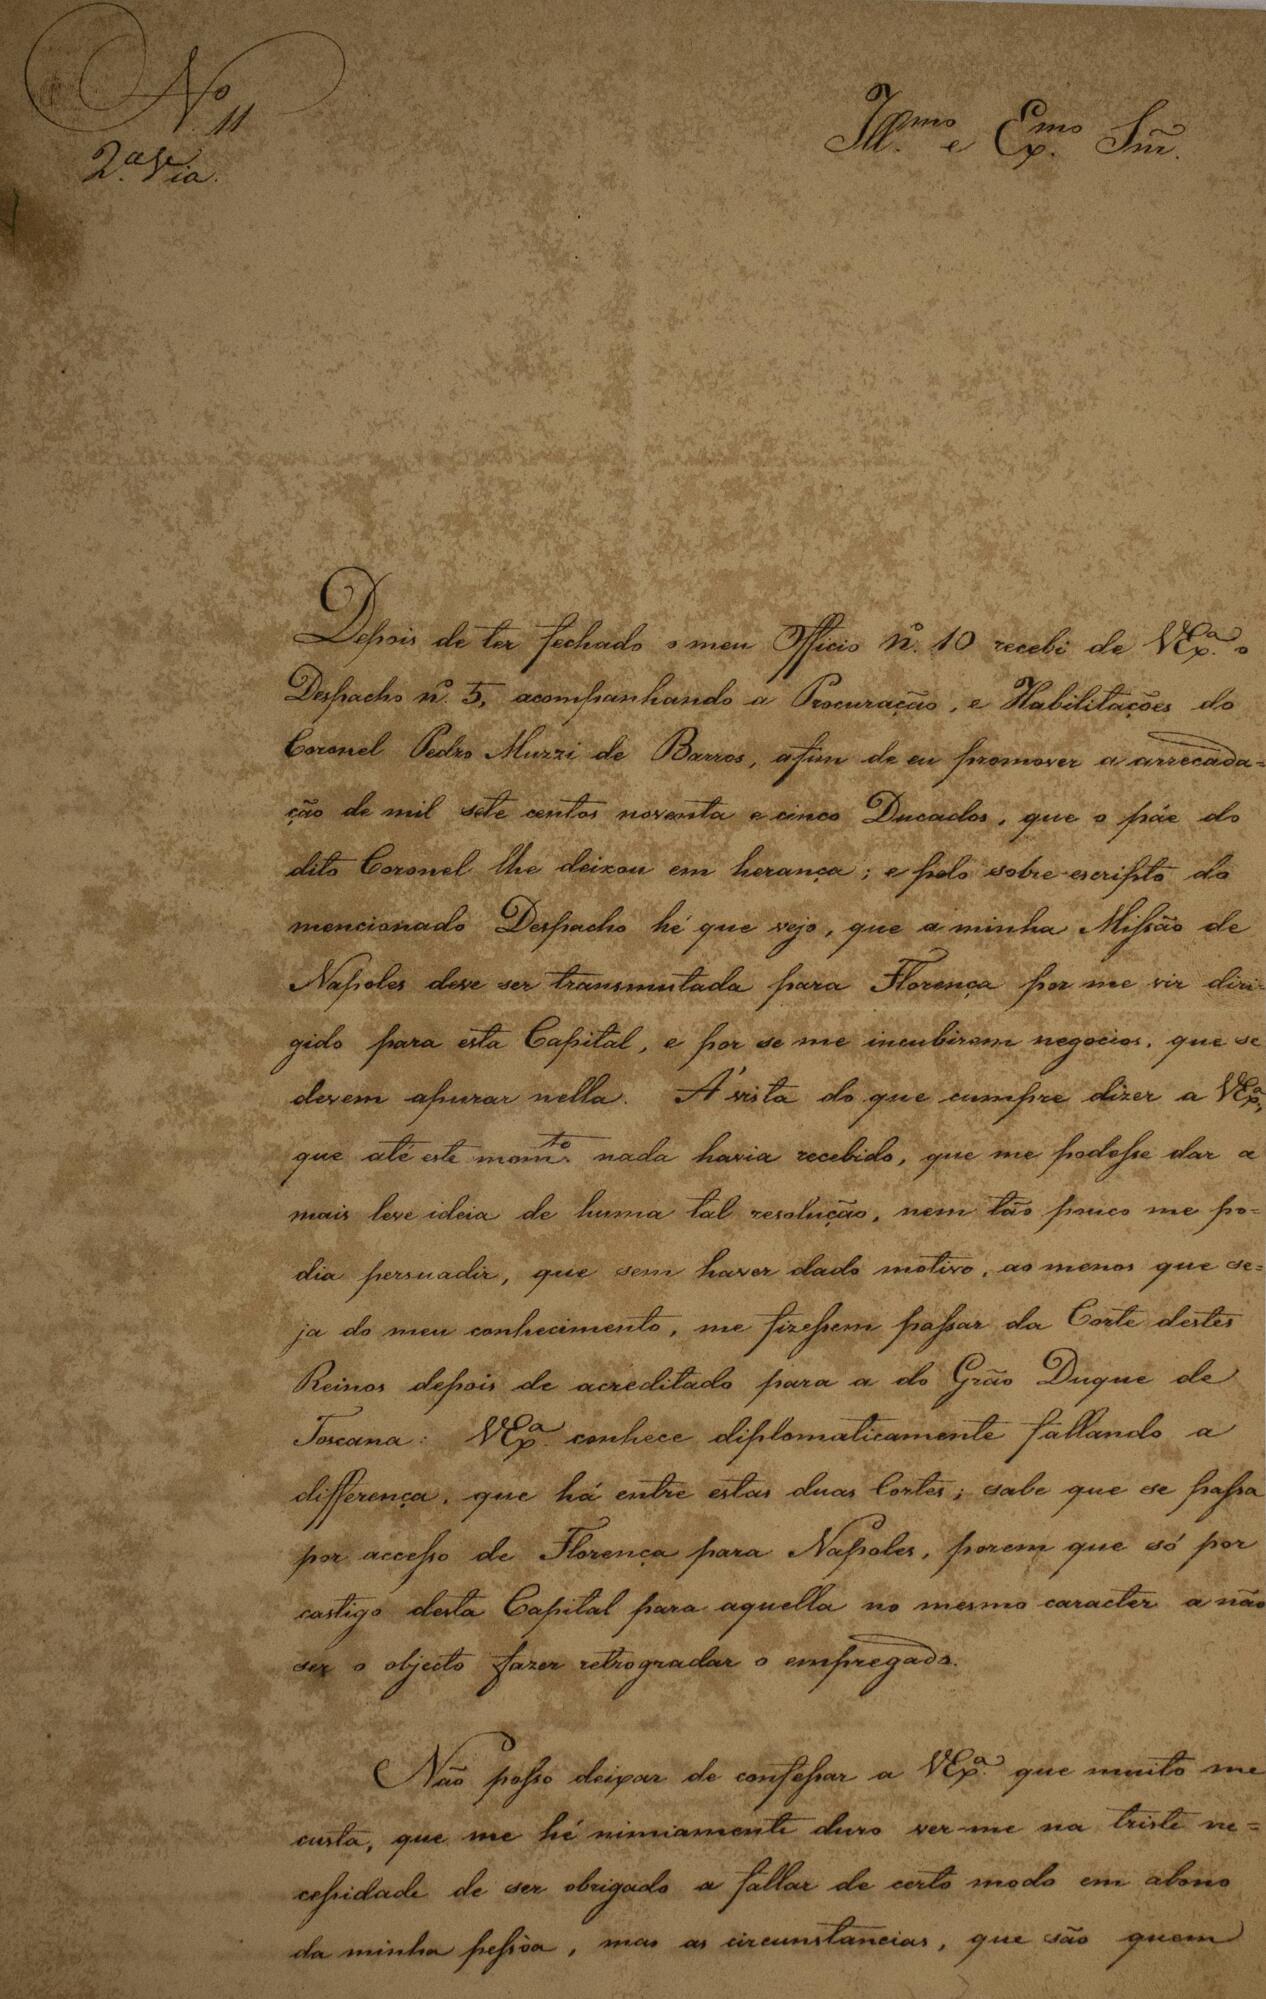 Nº 11
2.ª Via.
Ill.mo e Ex.mo Snr̃.
Depois de ter fechado o meu Officio nº. 10 recebi de VEx.ª o
Despacho nº. 5, acompanhando a Procuração, e Habilitações do
Coronel Pedro Muzzi de Barros, afim de eu promover a arrecada=
ção de mil sete centos noventa e cinco Ducados, que o páe do
dito Coronel lhe deixou em herança; e pelo sobre-escripto do
mencionado Despacho hé que vejo, que a minha Missão de
Napoles deve ser transmutada para Florença por me vir diri-
gido para esta Capital, e por se me incubirem negocios, que se
devem apurar nella. Á vista do que cumpre dizer a VEx.ª,
que até este mom.to nada havia recebido, que me podesse dar a
mais leve ideia de huma tal resolução, nem tão pouco me po=
dia persuadir, que sem haver dado motivo, ao menos que se=
ja do meu conhecimento, me fizessem passar da Corte destes
Reinos depois de acreditado para a do Grão Duque de
Toscana: VEx.ª conhece diplomaticamente fallando a
differença, que há entre estas duas Cortes; sabe que se passa
por accesso de Florença para Napoles, porem que só por
castigo desta Capital para aquella no mesmo caracter a não
ser o objecto fazer retrogradar o empregado.
Não posso deixar de confessar a VEx.ª que muito me
custa, que me hé nimiamente duro ver-me na triste ne=
cessidade de ser obrigado a fallar de certo modo em abono
da minha pessòa, mas as circunstancias, que são quem